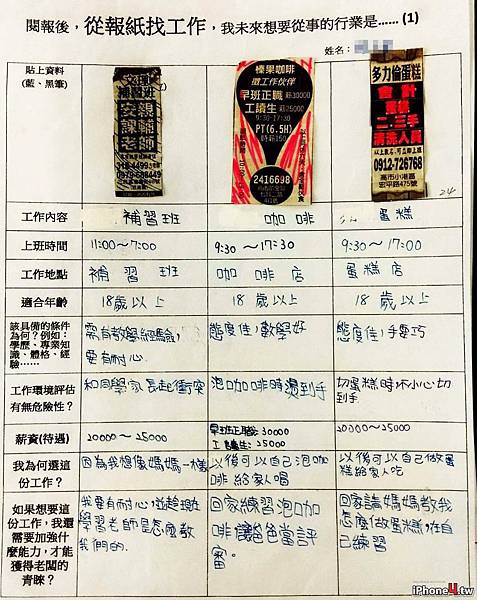 閱報後，從報紙找工作，我未來想要從事的行業是...... (1)
姓名：
貼上資料
(藍、黑筆)
補習班
安親
課輔
老師
榛果咖啡
徵工作伙伴
早班正職 薪30000
工讀生 薪25000
9:30-17:30
PT(6.5H)
時薪150
2416698
多力倫蛋糕
會計
蛋糕
二、三手
清洗人員
以上意名，可立即上班
0912-726768
高市小港區
宏平路475號
24
工作內容
補習班
咖啡
蛋糕
上班時間
11:00～7:00
9:30～17:30
9:30～17:00
工作地點
補習班
咖啡店
蛋糕店
適合年齡
18歲以上
18歲以上
18歲以上
該具備的條件
為何？例如：
學歷、專業知
識、體格、經
驗……
需有教學經驗，
要有耐心.
態度佳，數學好
態度佳，手要巧
工作環境評估
有無危險性？
和同學家長起衝突
泡咖啡時燙到手
切蛋糕時不小心切
到手.
薪資(待遇)
20000～25000
早班正職：30000
工讀生：25000
20000～25000
我為何選這
份工作？
因為我想像媽媽一樣
以後可以自己泡咖
啡給家人喝
以後可以自己做蛋
糕給家人吃
如果想要這
份工作，我還
需要加強什
麼能力，才能
獲得老闆的
青睞？
我要有耐心，並趁現在
學習老師是怎麼教
我們的.
回家練習泡咖
啡，請爸爸當評
審。
回家請媽媽教我
怎麼做蛋糕，在自
己練習
iPhone4.tw